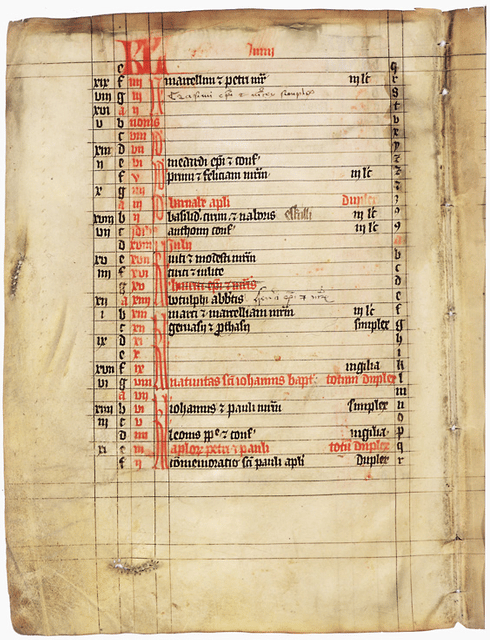 KL Iunii
e q
xix f iiii N marcellini & petri mr iii lc r
viii g iii N Erasmi epi & mris simplex s
xvi a ii t
v b nonis v
c viii x
xiii d vii y
ii e vi medardi epi & conf z
f v primi & feliciani mrm iii lc
x g iiii
a iii barnabe apli duplex
xviii b ii basilid cirini & naboris iii lc 9
vii c idus anthonii conf iii lc
d xviii iulii a
xv e xvii viti & modesti mrm b
iiii f xvi cirici & iulite c
g xv d
xii a xiiii botulphi abbtis e
i b xiii marci & marcelliani mrm iii lc f
c xii geruasii & prothasii simplex g
ix d xi h
e x i
xvii f ix vigilia k
vi g viii natiuitas sci iohannis bapt totum duplex l
a vii m
xiiii b vi iohannis & pauli mrm simplex n
iii c v o
d iiii leonis pp & conf vigilia p
xi e iii aplor petri & pauli totu duplex q
f ii comemoracio sci pauli apli duplex r